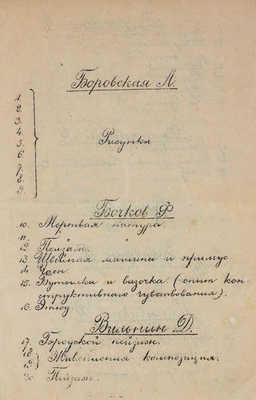 Боровская Л.
1.
2.
3.
4.
5. Рисунки
6.
7.
8.
9.
Бочков Ф.
10. Мертвая натура
11.
12. Пейзаж.
13. Швейная машина и примус
14.
15. Бутылки и вазочка (опыт кон-
структивного чувствования).
16. Этюд
Вильпин Д.
17. Городской пейзаж.
18.
19. Живописная композиция.
20. Пейзаж.